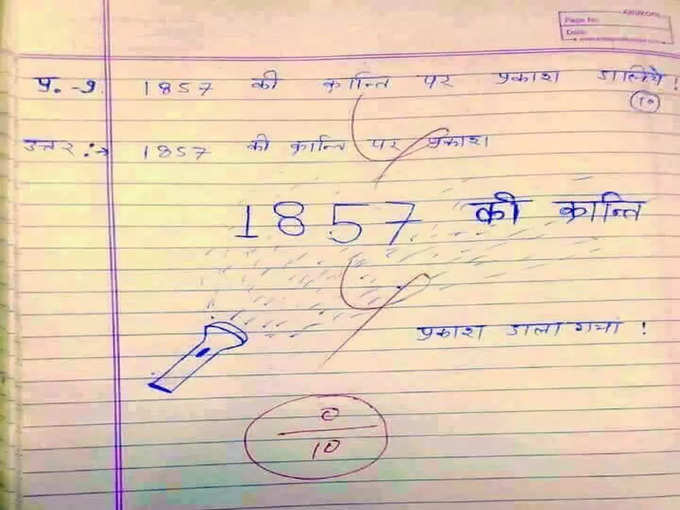 Page No.
Date
प्र.-१. 1857 की क्रान्ति पर प्रकाश डालिये!
10
उत्तर :→ 1857 की क्रान्ति पर प्रकाश
1857 की क्रान्ति
प्रकाश डाला गया!
0
10